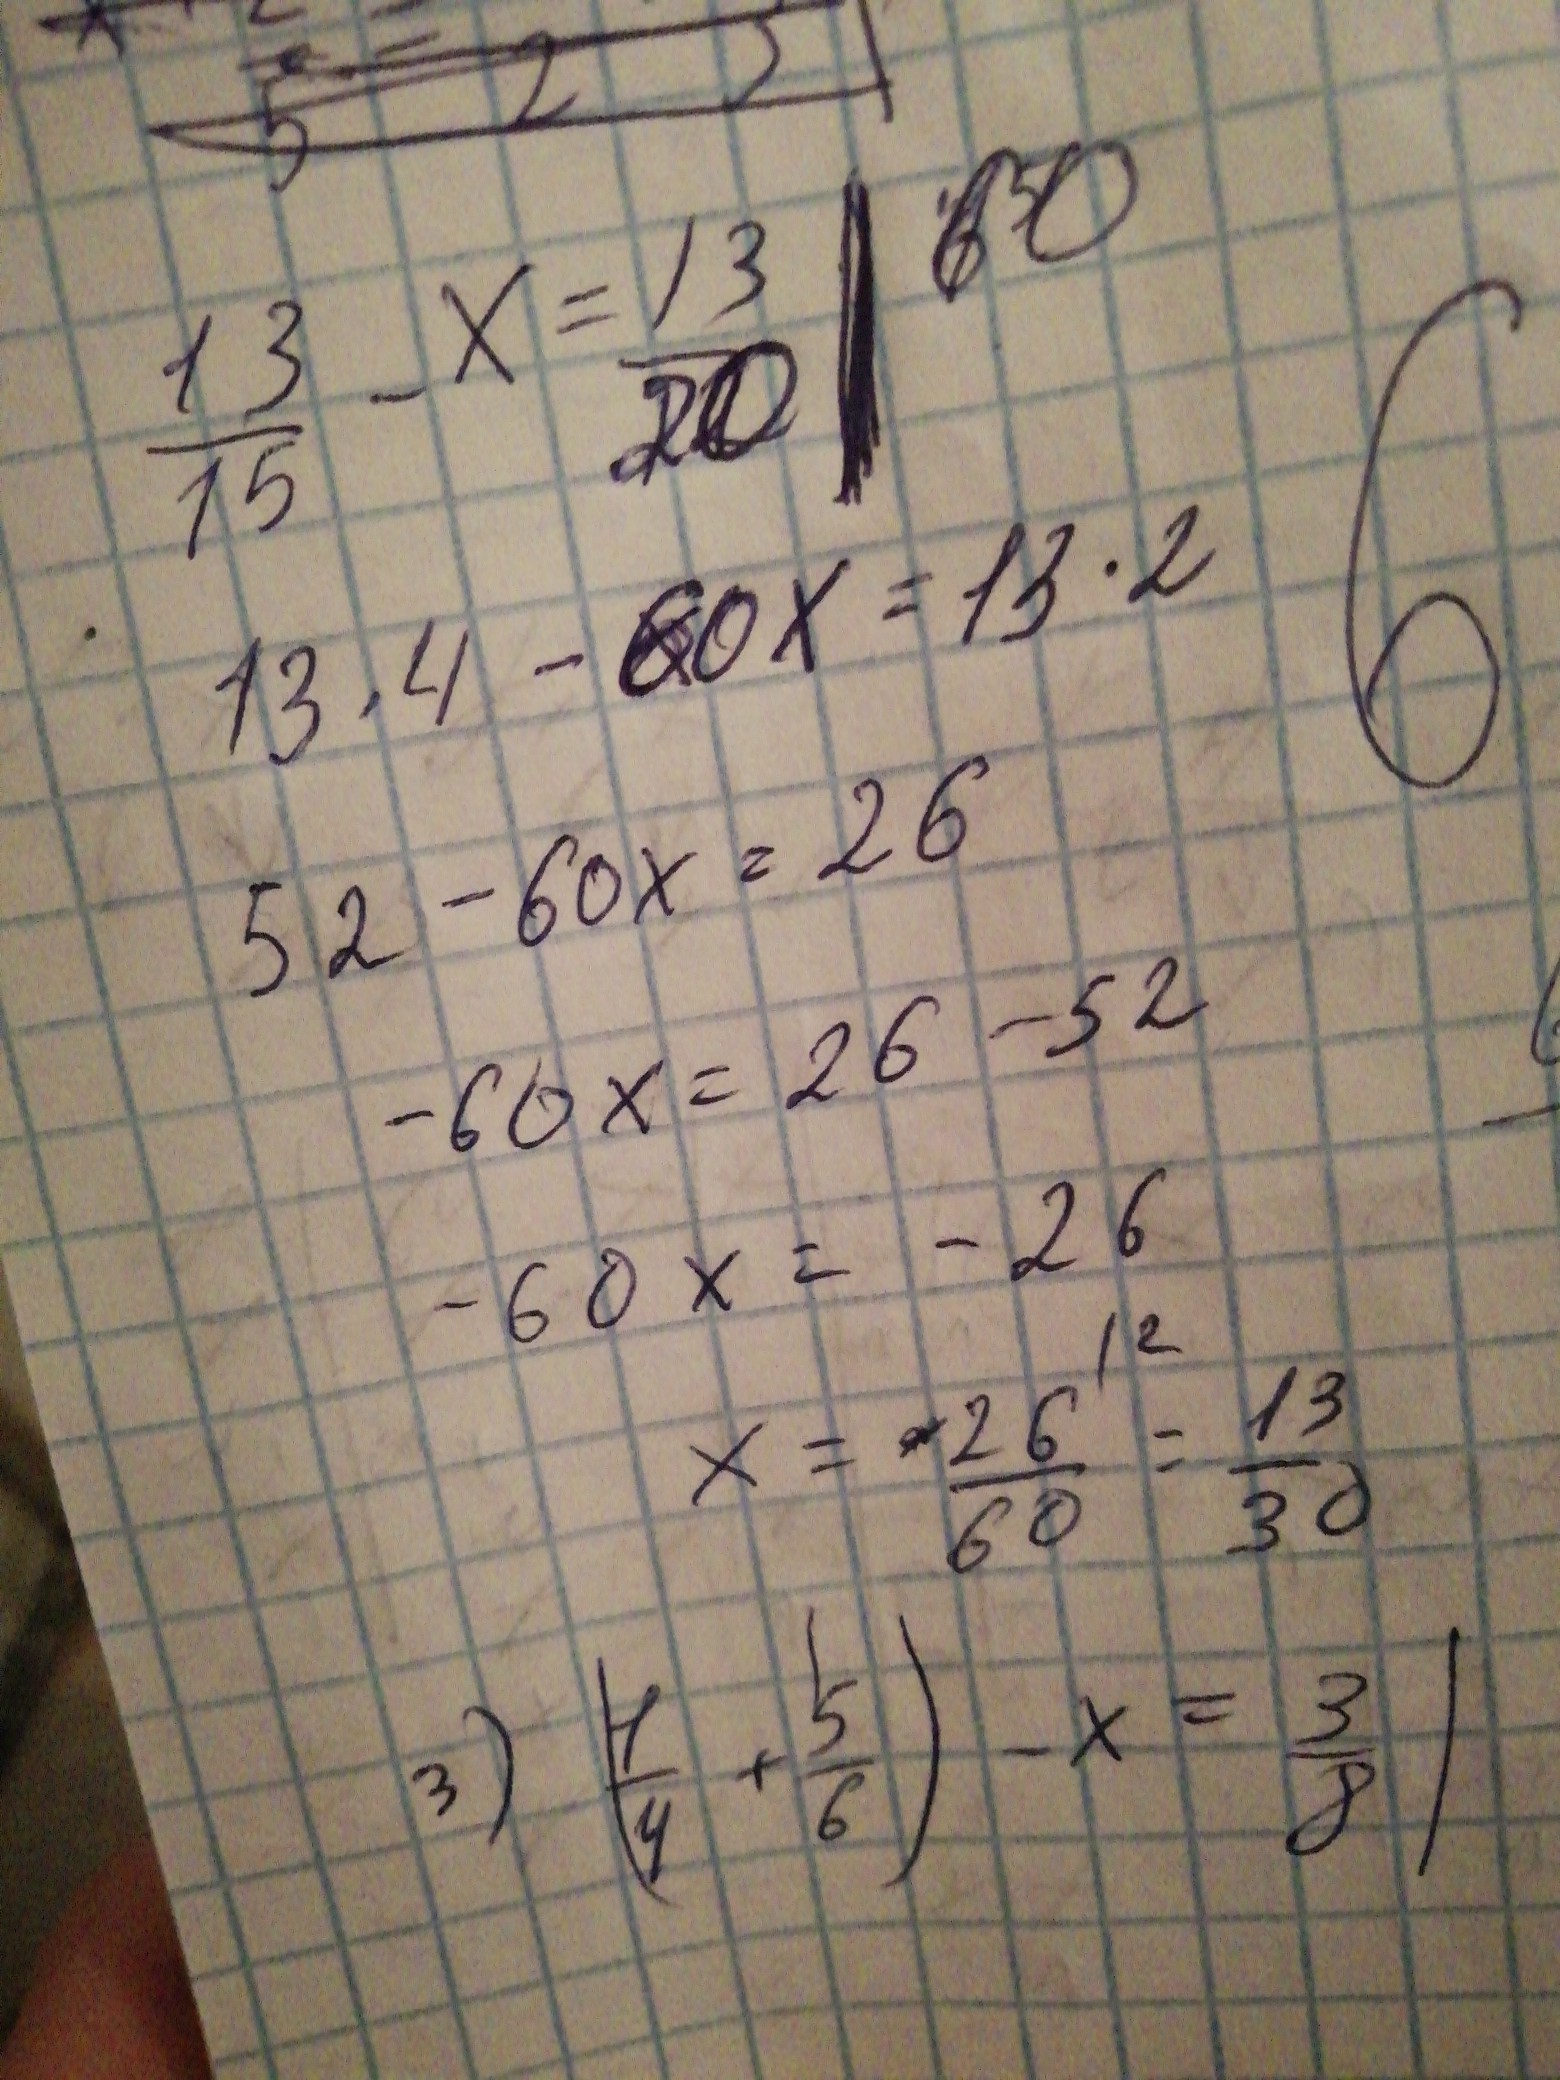 13/15 - x = 13/20 | 60
13 · 4 - 60x = 13 · 2
52 - 60x = 26
-60x = 26 - 52
-60x = -26
x = 26/60 |2 = 13/30
3) (1/4 + 5/6) - x = 3/8 |